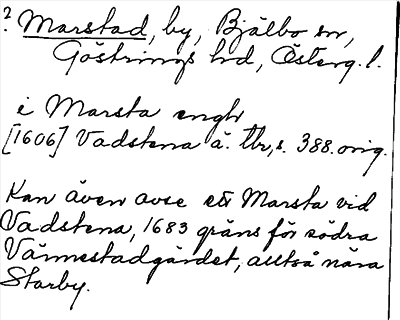 ? Marstad, by, Bjälbo sn,
Göstrings hd, Österg. l.
i Marsta engh
[1606] Vadstena ä. tbr, s. 388. orig.
Kan även avse ett Marsta vid
Vadstena, 1683 gräns för södra
Värmestadgärdet, alltså nära
Starby.